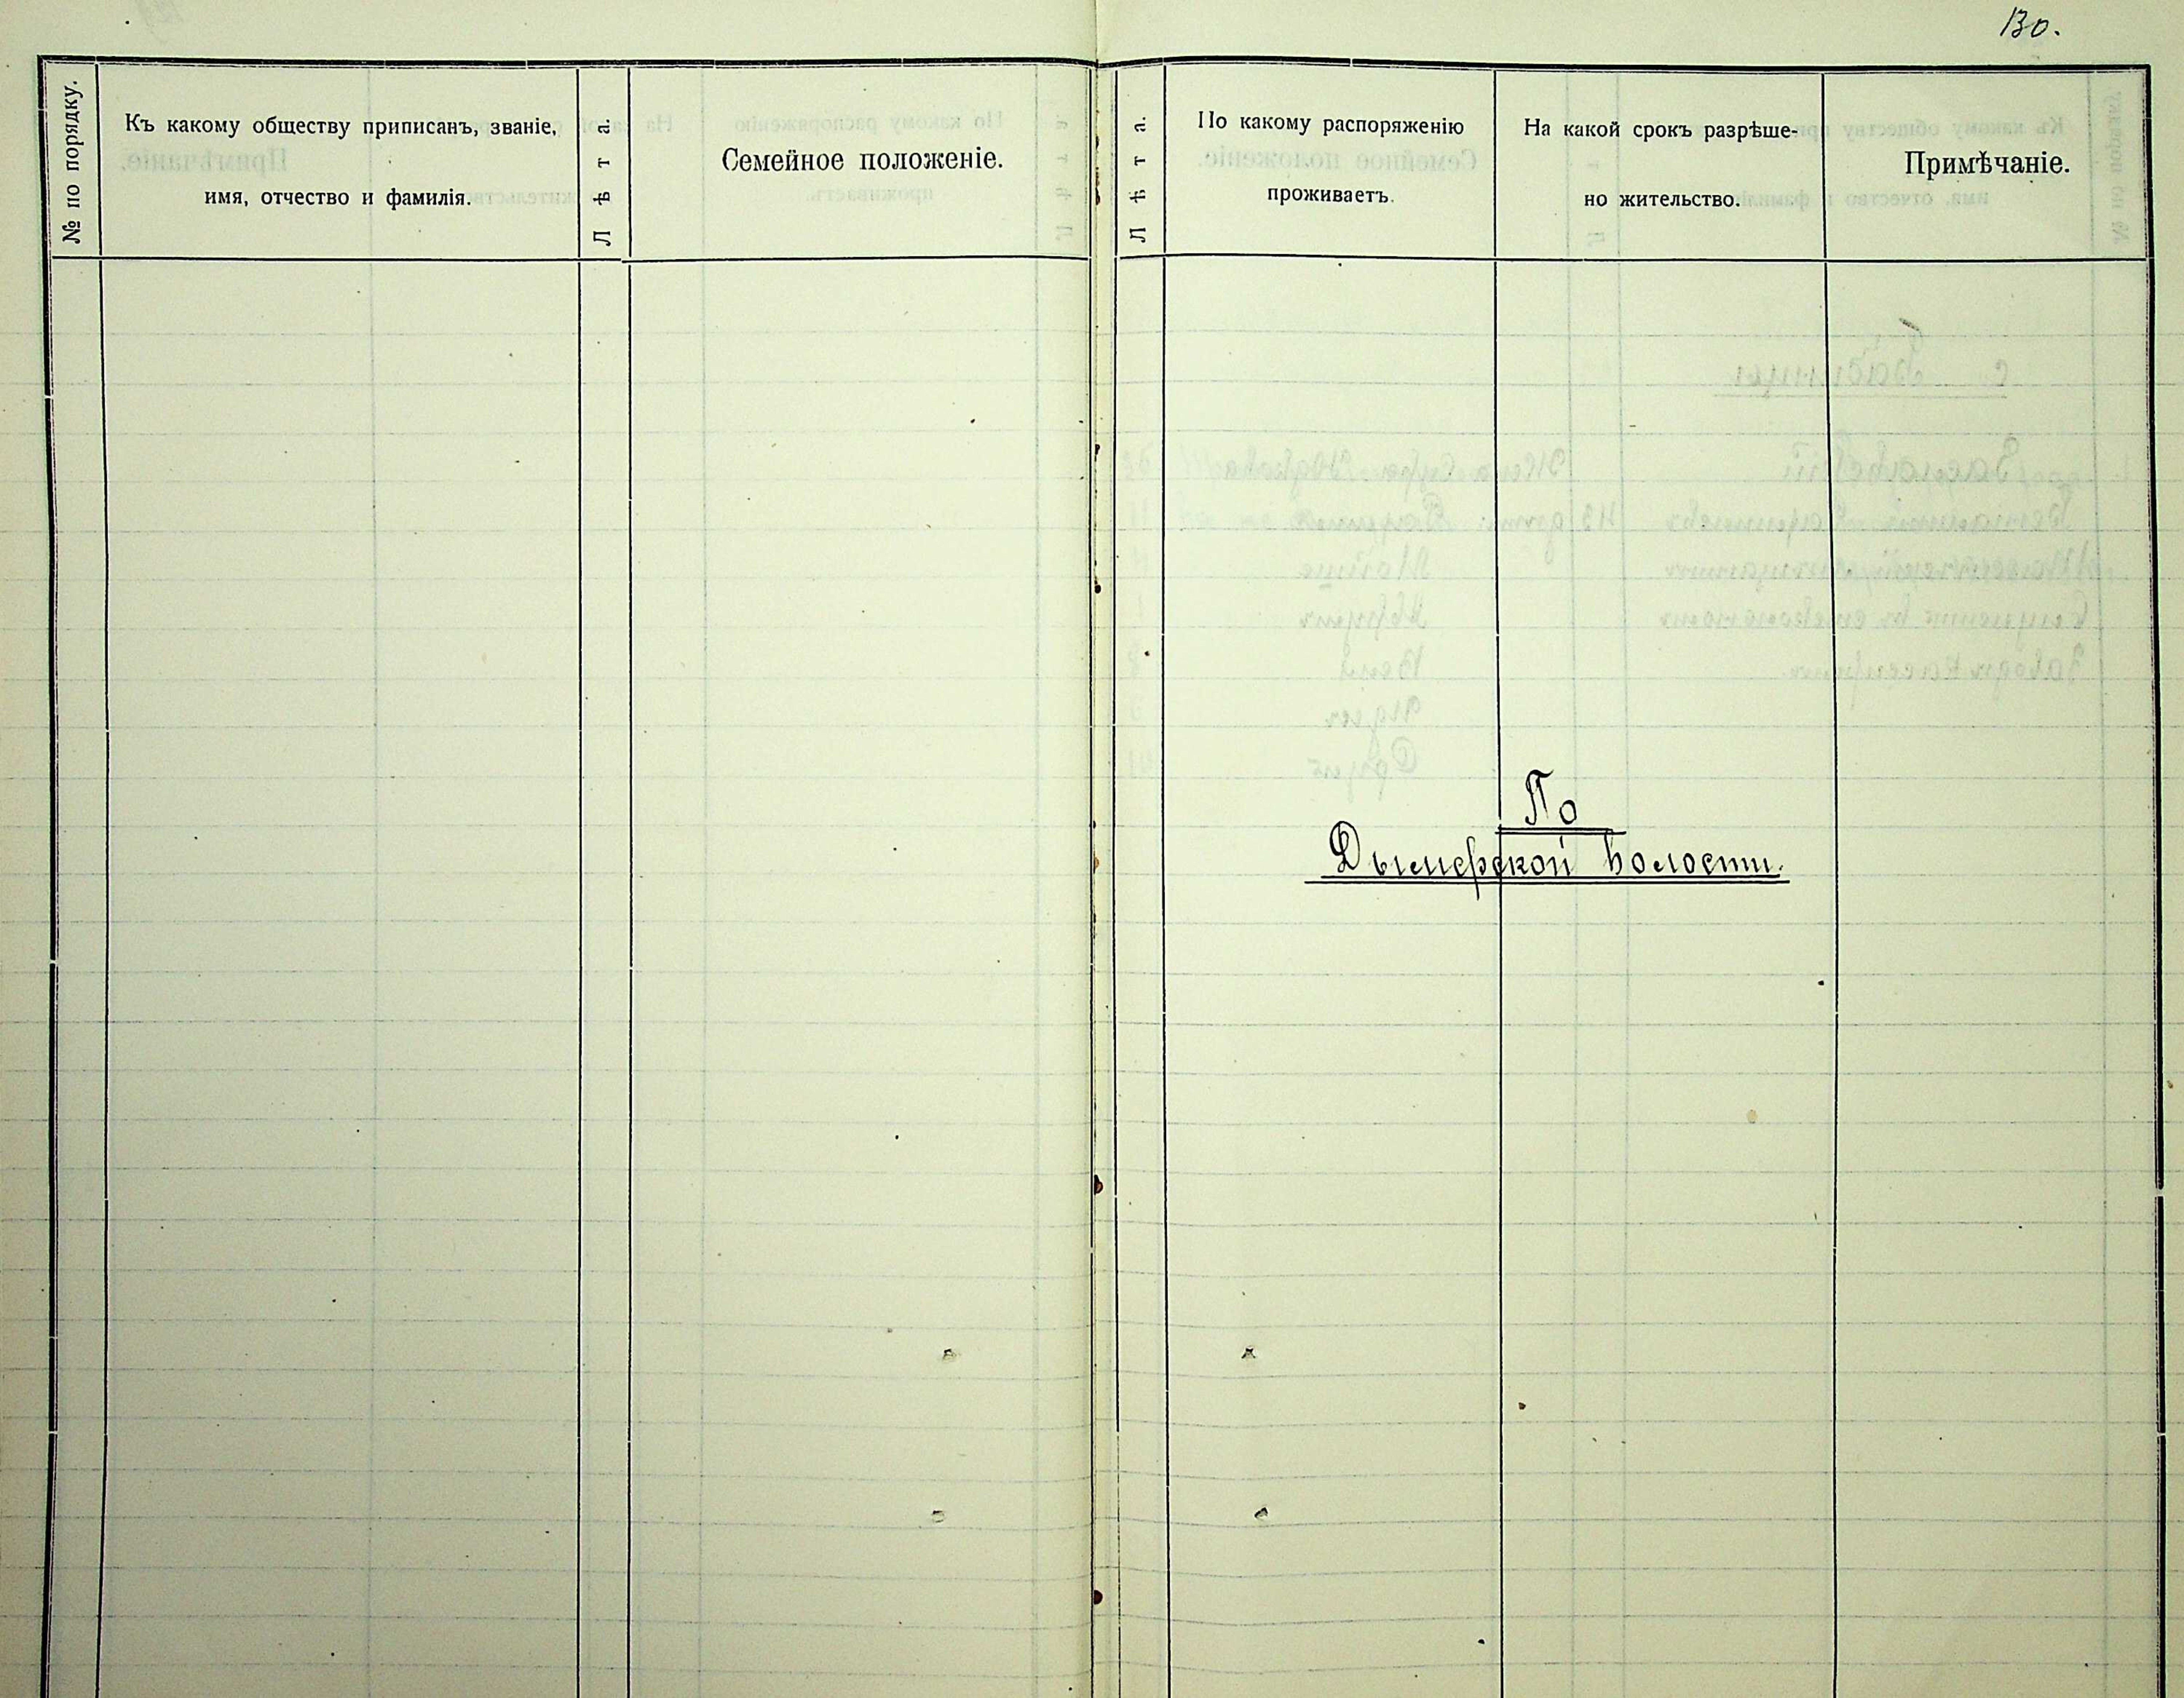 130.
№ по порядку.
Къ какому обществу приписанъ, званіе,
имя, отчество и фамилія.
Лѣта.
Семейное положеніе.
Лѣта.
По какому распоряженію
проживаетъ.
На какой срокъ разрѣше-
но жительство.
Примѣчаніе.
По
Дымерской волости.